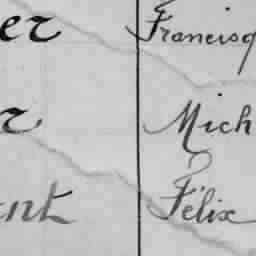 er Francisq
r Mich
ent Félix